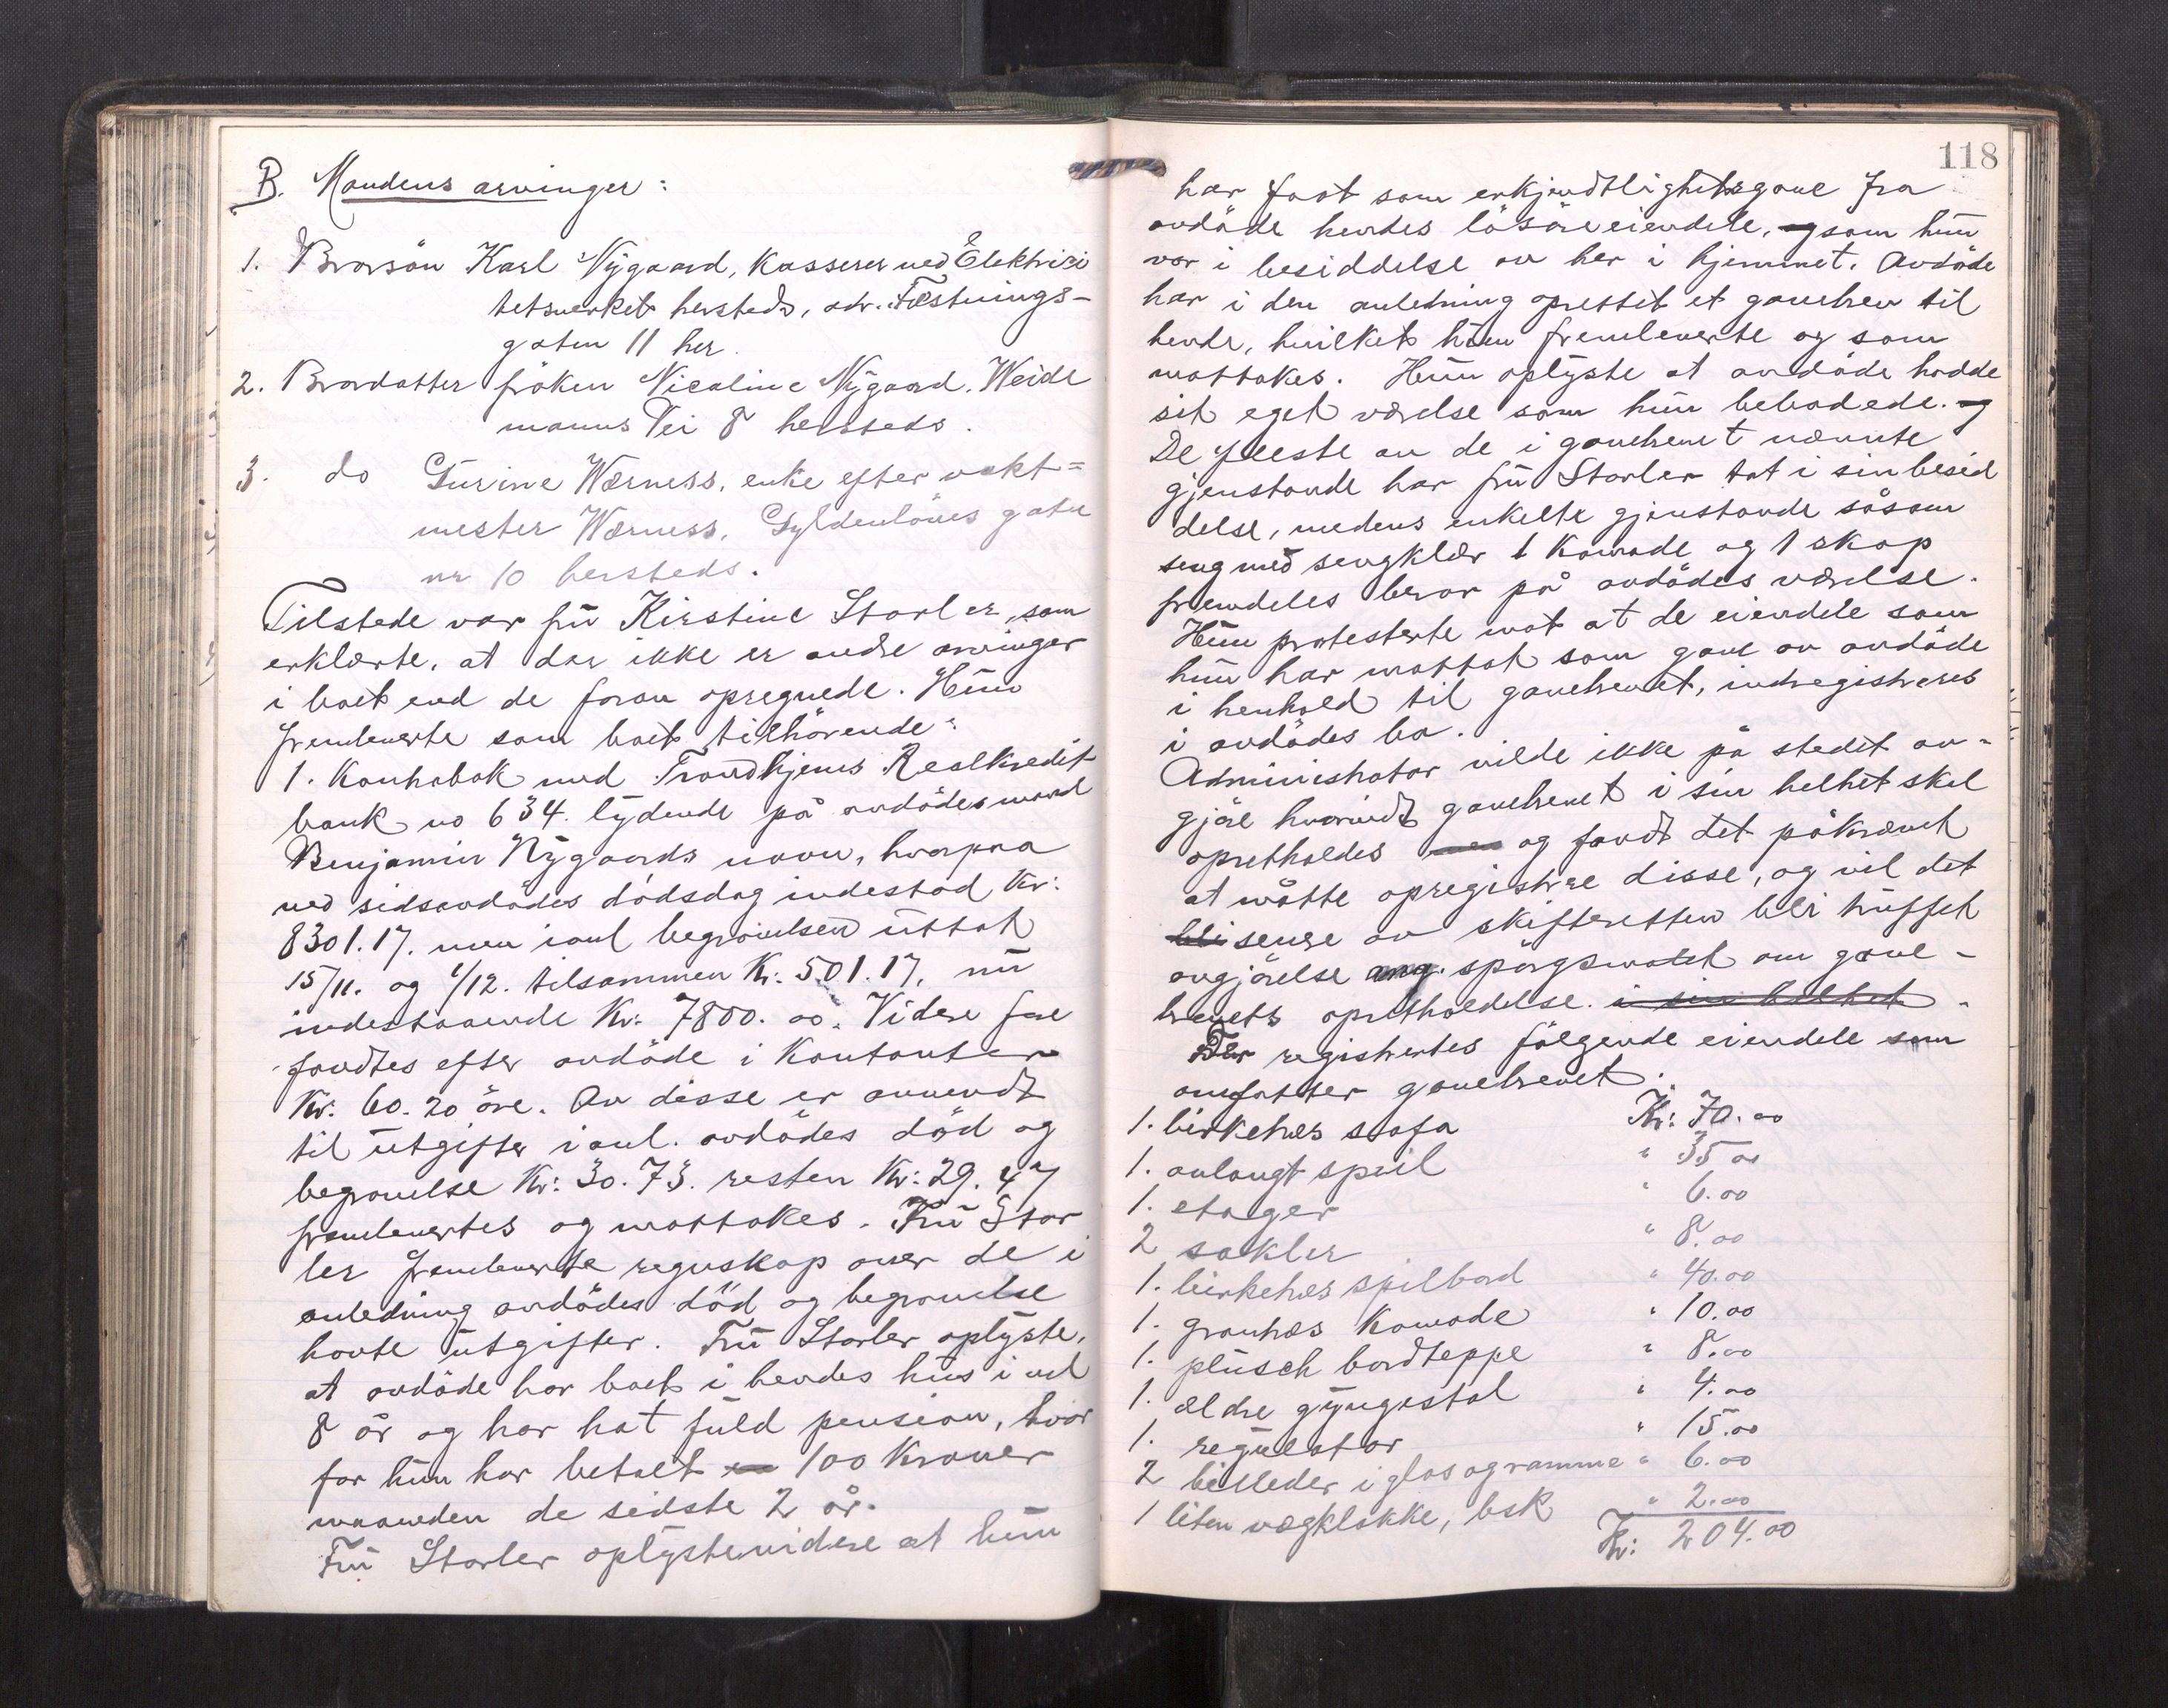 B. Mandens arvinger:
1. Brorsön Karl Nygaard, kasserer ved Elektrici
tetsverket hersteds, adr. Festnings-
gaten 11 her.
2. Brordatter fröken Nicoline Nygaard. Weide
manns Vei 8 hersteds.
3. do Gurine Værness, enke efter vakt=
mester Værness, Gyldenlöves gate
nr 10 hersteds.
Tilstede var frü Kirstine Starler, som
erklærte, at der ikke er andre arvinger
i boet end de foran opregnede. Hün
fremleverte som boet tilhörende:
1. Kontrabok med Trondhjems Realkredit
bank no 634. lydende på avdödes mand
Benjamin Nygaards navn, hvorpaa
ved sidstavdödes dödsdag indestod Kr:
8301.17. men i anl begravelsen üttat
15/11. og 1/12. tilsammen Kr: 501.17, nü
indestaaende Kr: 7800.00. Videre fore
fandtes efter avdöde i Kontanter
Kr: 60.20 öre. Av disse er anvendt
til ütgifter i anl. avdödes död og
begravelse Kr: 30.73. resten Kr: 29.47
fremlevertes og mottokes. Frü Star
ler fremleverte regnskap over de i
anledning avdödes död og begravelse
havte ütgifter. Frü Starler oplyste,
at avdöde har boet i hendes hüs i vel
8 år og har hat füld pension, hvor
for hün har betalt 100 Kroner
maaneden de sidste 2 år.
Frü Starler oplyste videre at hün
118
har faat som erkjendtlighetsgave fra
avdöde hendes lösöreeiendele, og som hün
var i besiddelse av her i hjemmet. Avdöde
har i den anledning oprettet et gavebrev til
hende, hvilket hün fremleverte og som
mottokes. Hün oplyste at avdöde hadde
sit eget værelse som hün bebodede. og
De fleste av de i gavebrevet nævnte
gjenstande har frü Starler tat i sin besid
delse, medens enkelte gjenstande såsom
seng med sengklær 1 Komode og 1 skap
fremdeles beror på avdödes værelse.
Hün protesterte mot at de eiendele som
hün har mottat som gave av avdöde
i henhold til gavebrevet, indregistreres
i avdödes bo.
Administrator vilde ikke på stedet av-
gjöre hvorvidt gavebrevet i sin helhet skal
opretholdes og fandt det påkrævet
at måtte opregistrere disse, og vil det
bli senere av skifteretten bli truffet
avgjörelse ang. spörgsmålet om gave-
brevets opretholdelse. i sin helhet.
Der registrertes fölgende eiendele som
omfatter gavebrevet.
1. birketræs sofa Kr: 70.00
1. avlangt speil " 35 00
1. etager " 6.00
2 sokler " 8.00
1. birketræs spilbord " 40.00
1. grantræs Komode " 10.00
1. plüsch bordteppe " 8.00
1. ældre gyngestol " 4.00
1. regülator " 15.00
2 billeder i glas og ramme " 6.00
1 liten vægklokke, bsk " 2.00
Kr: 204.00